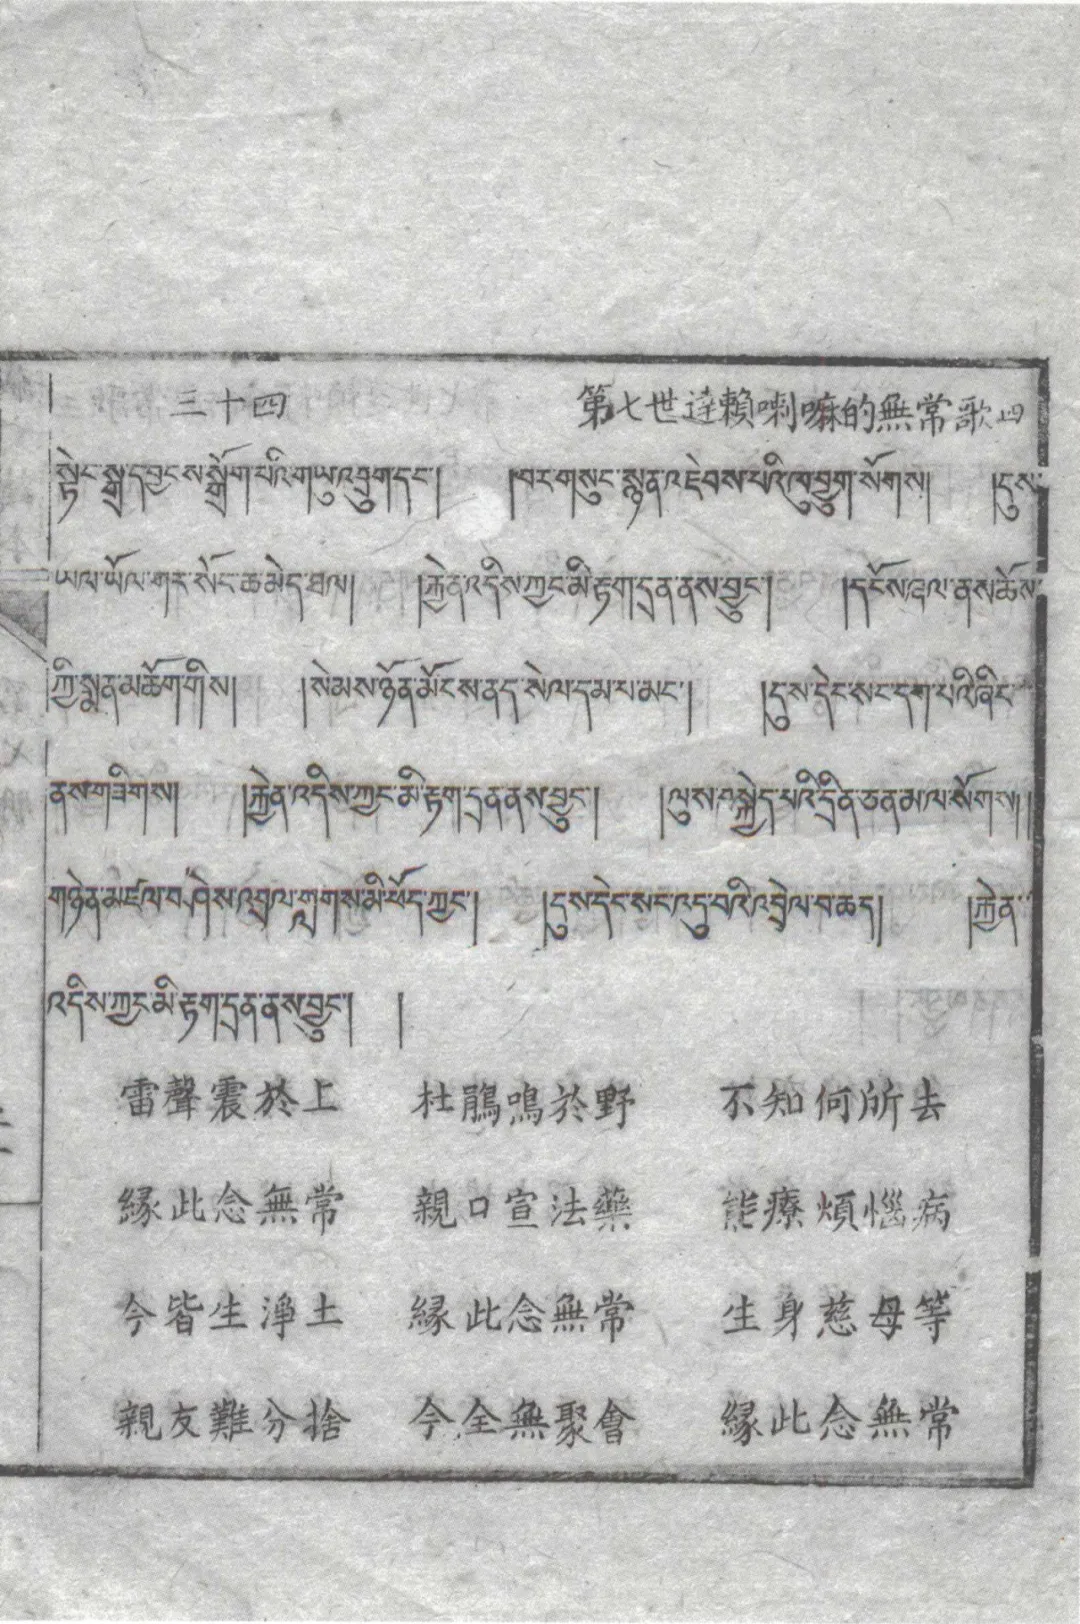 三十四 第七世達賴喇嘛的無常歌 四
སྟེང་སྒྲ་དབྱངས་སྒྲོག་པའི་གཡུ་འབྲུག་དང་། །བར་གསུང་སྙན་འདེབས་པའི་ཁུ་བྱུག་སོགས། །དུས་
ཡལ་ཡོལ་གར་སོང་ཆ་མེད་ཐལ། །རྐྱེན་འདིས་ཀྱང་མི་རྟག་དྲན་ནས་བྱུང་། །དངོས་ཞལ་ནས་ཆོས་
ཀྱི་སྨན་མཆོག་གིས། །སེམས་ཉོན་མོངས་ནད་སེལ་དམ་པ་མང་། །དུས་དེང་སང་དག་པའི་ཞིང་
ནས་གཟིགས། །རྐྱེན་འདིས་ཀྱང་མི་རྟག་དྲན་ནས་བྱུང་། །ལུས་བསྐྱེད་པའི་དྲིན་ཅན་མ་ལ་སོགས། །
གཉེན་མཛལ་བ་ཤེས་འབྲལ་གླགས་མི་ཕོད་ཀྱང་། །དུས་དེང་སང་འདུ་བའི་འབྲེལ་བ་ཆད། །རྐྱེན་
འདིས་ཀྱང་མི་རྟག་དྲན་ནས་བྱུང་། །
雷聲震於上 杜鵑鳴於野 不知何所去
緣此念無常 親口宣法藥 能療煩惱病
今皆生淨土 緣此念無常 生身慈母等
親友難分捨 今全無聚會 緣此念無常